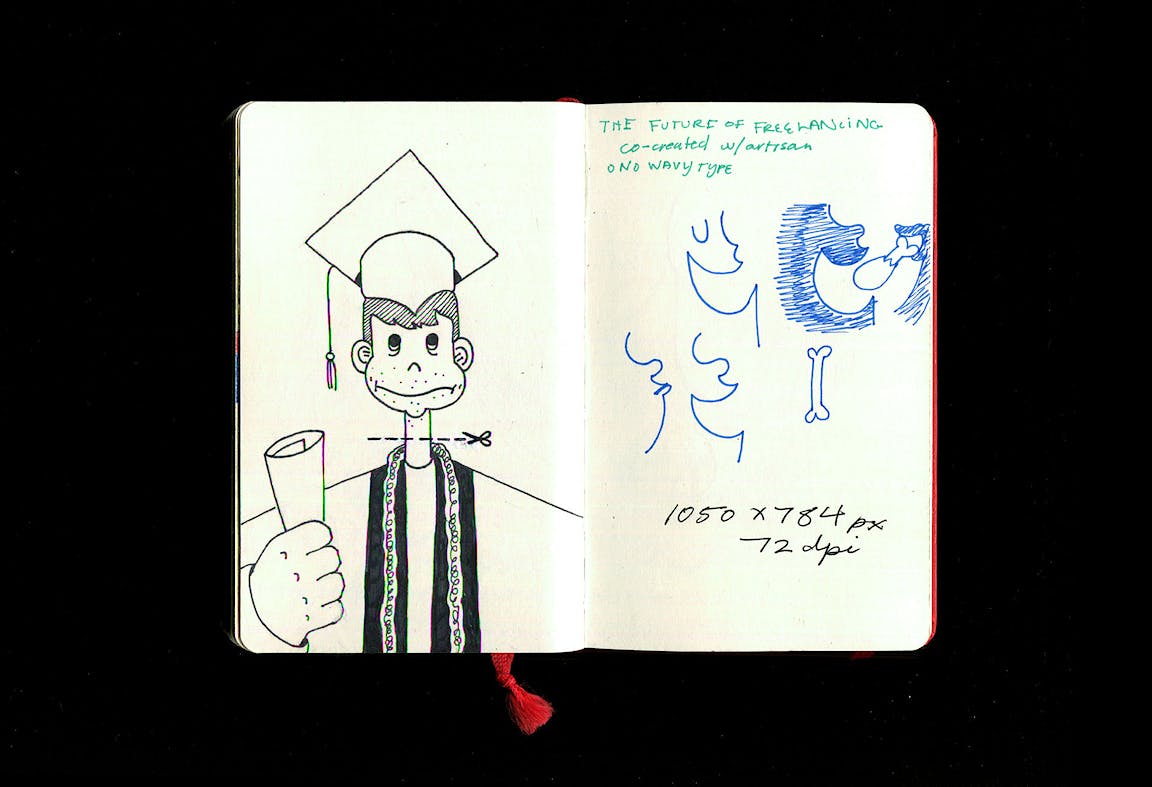 THE FUTURE OF FREELANCING
co-created w/artisan
ONO WAVY TYPE
1050 x 784 px
72 dpi